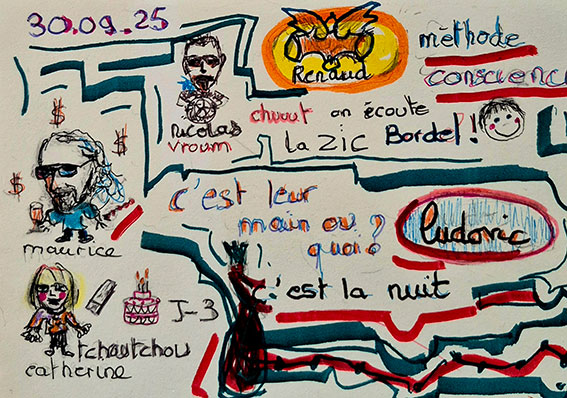 30.09.25
Renaud
méthode
conscienc
nicolas
vroum
chuuut on écoute
la zic Bordel!
$ $
$
maurice
c'est leur
main ou ?
quoi ?
Ludovic
c'est la nuit
J-3
tchoutchou
catherine